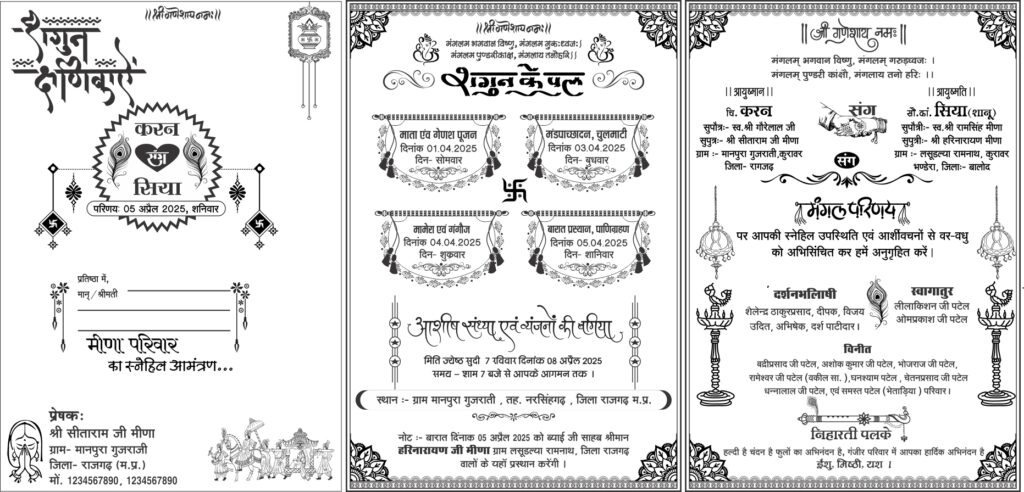 ॥श्री गणेशाय नमः॥
शगुन
क्षणिकाएं
करन
शुभ
सिया
परिणयः 05 अप्रैल 2025, शनिवार
प्रतिष्ठा में,
मान्/श्रीमती
मीणा परिवार
का स्नेहिल आमंत्रण...
प्रेषकः
श्री सीताराम जी मीणा
ग्राम- मानपुरा गुजराजी
जिला- राजगढ़ (म.प्र.)
मों. 1234567890, 1234567890
॥श्री गणेशाय नमः॥
मंगलम भगवान विष्णु, मंगलम गुरूःध्वजः।
मंगलम पुण्डरीकाक्ष, मंगलाय तनोहरिः।।
शगुन के पल
माता एंव गेणश पूजन
दिनांक 01.04.2025
दिन- सोमवार
मंडपाच्छादन, चुलमाटी
दिनांक 03.04.2025
दिन- बुधवार
मामेरा एवं गंगौज
दिनांक 04.04.2025
दिन- शुक्रवार
बारात प्रस्थान, पाणिग्रहण
दिनांक 05.04.2025
दिन- शानिवार
आशीष संध्या एवं व्यंजनों की बगिया
मिति ज्येष्ठ सुदी 7 रविवार दिनांक 08 अप्रैल 2025
समय – शाम 7 बजे से आपके आगमन तक ।
स्थान :- ग्राम मानपुरा गुजराती , तह. नरसिंहगढ़ , जिला राजगढ़ म.प्र.
नोट :- बारात दिंनाक 05 अप्रैल 2025 को ब्याई जी साहब श्रीमान
हरिनारायण जी मीणा ग्राम लसूडल्या रामनाथ, जिला राजगढ़
वालों के यहाँ प्रस्थान करेंगी ।
|| श्री गणेशाय नमः ||
मंगलम् भगवान विष्णु, मंगलम् गरुड़ध्वजः ।
मंगलम् पुण्डरी कांक्षौ, मंगलाय तनो हरिः ।।
||आयुष्मान||
चि. करन
सुपौत्रः- स्व.श्री गौरेलाल जी
सुपुत्रः- श्री सीताराम जी मीणा
ग्राम : मानपुरा गुजराती,कुरावर
जिला- रागजढ़
संग
संग
||आयुष्मति||
सौ.कां. सिया(शानू)
सुपौत्री:- स्व.श्री रामसिंह मीणा
सुपुत्री:- श्री हरिनारायण मीणा
ग्राम :- लसूडल्या रामनाथ, कुरावर
भण्डेरा, जिलाः- बालोद
मंगल परिणय
पर आपकी स्नेहिल उपस्थिति एवं आर्शीवचनों से वर-वधु
को अभिसिंचित कर हमें अनुगृहित करें ।
दर्शनभलिाषी
शेलेन्द्र ठाकुरप्रसाद, दीपक, विजय
उदित, अभिषेक, दर्श पाटीदार ।
स्वागातुर
लीलाकिशन जी पटेल
ओमप्रकाश जी पटेल
विनीत
बद्रीप्रसाद जी पटेल, अशोक कुमार जी पटेल, भोजराज जी पटेल,
रामेश्वर जी पटेल (वकील सा. ),घनश्याम पटेल, चेतनप्रसाद जी पटेल
धन्नालाल जी पटेल, एवं समस्त पटेल (भेताड़िया ) परिवार ।
निहारती पलके
हल्दी है चंदन है फुलों का अभिनंदन है, गंजीर परिवार में आपका हार्दिक अभिनंदन है
ईशु, मिष्ठी, यश !